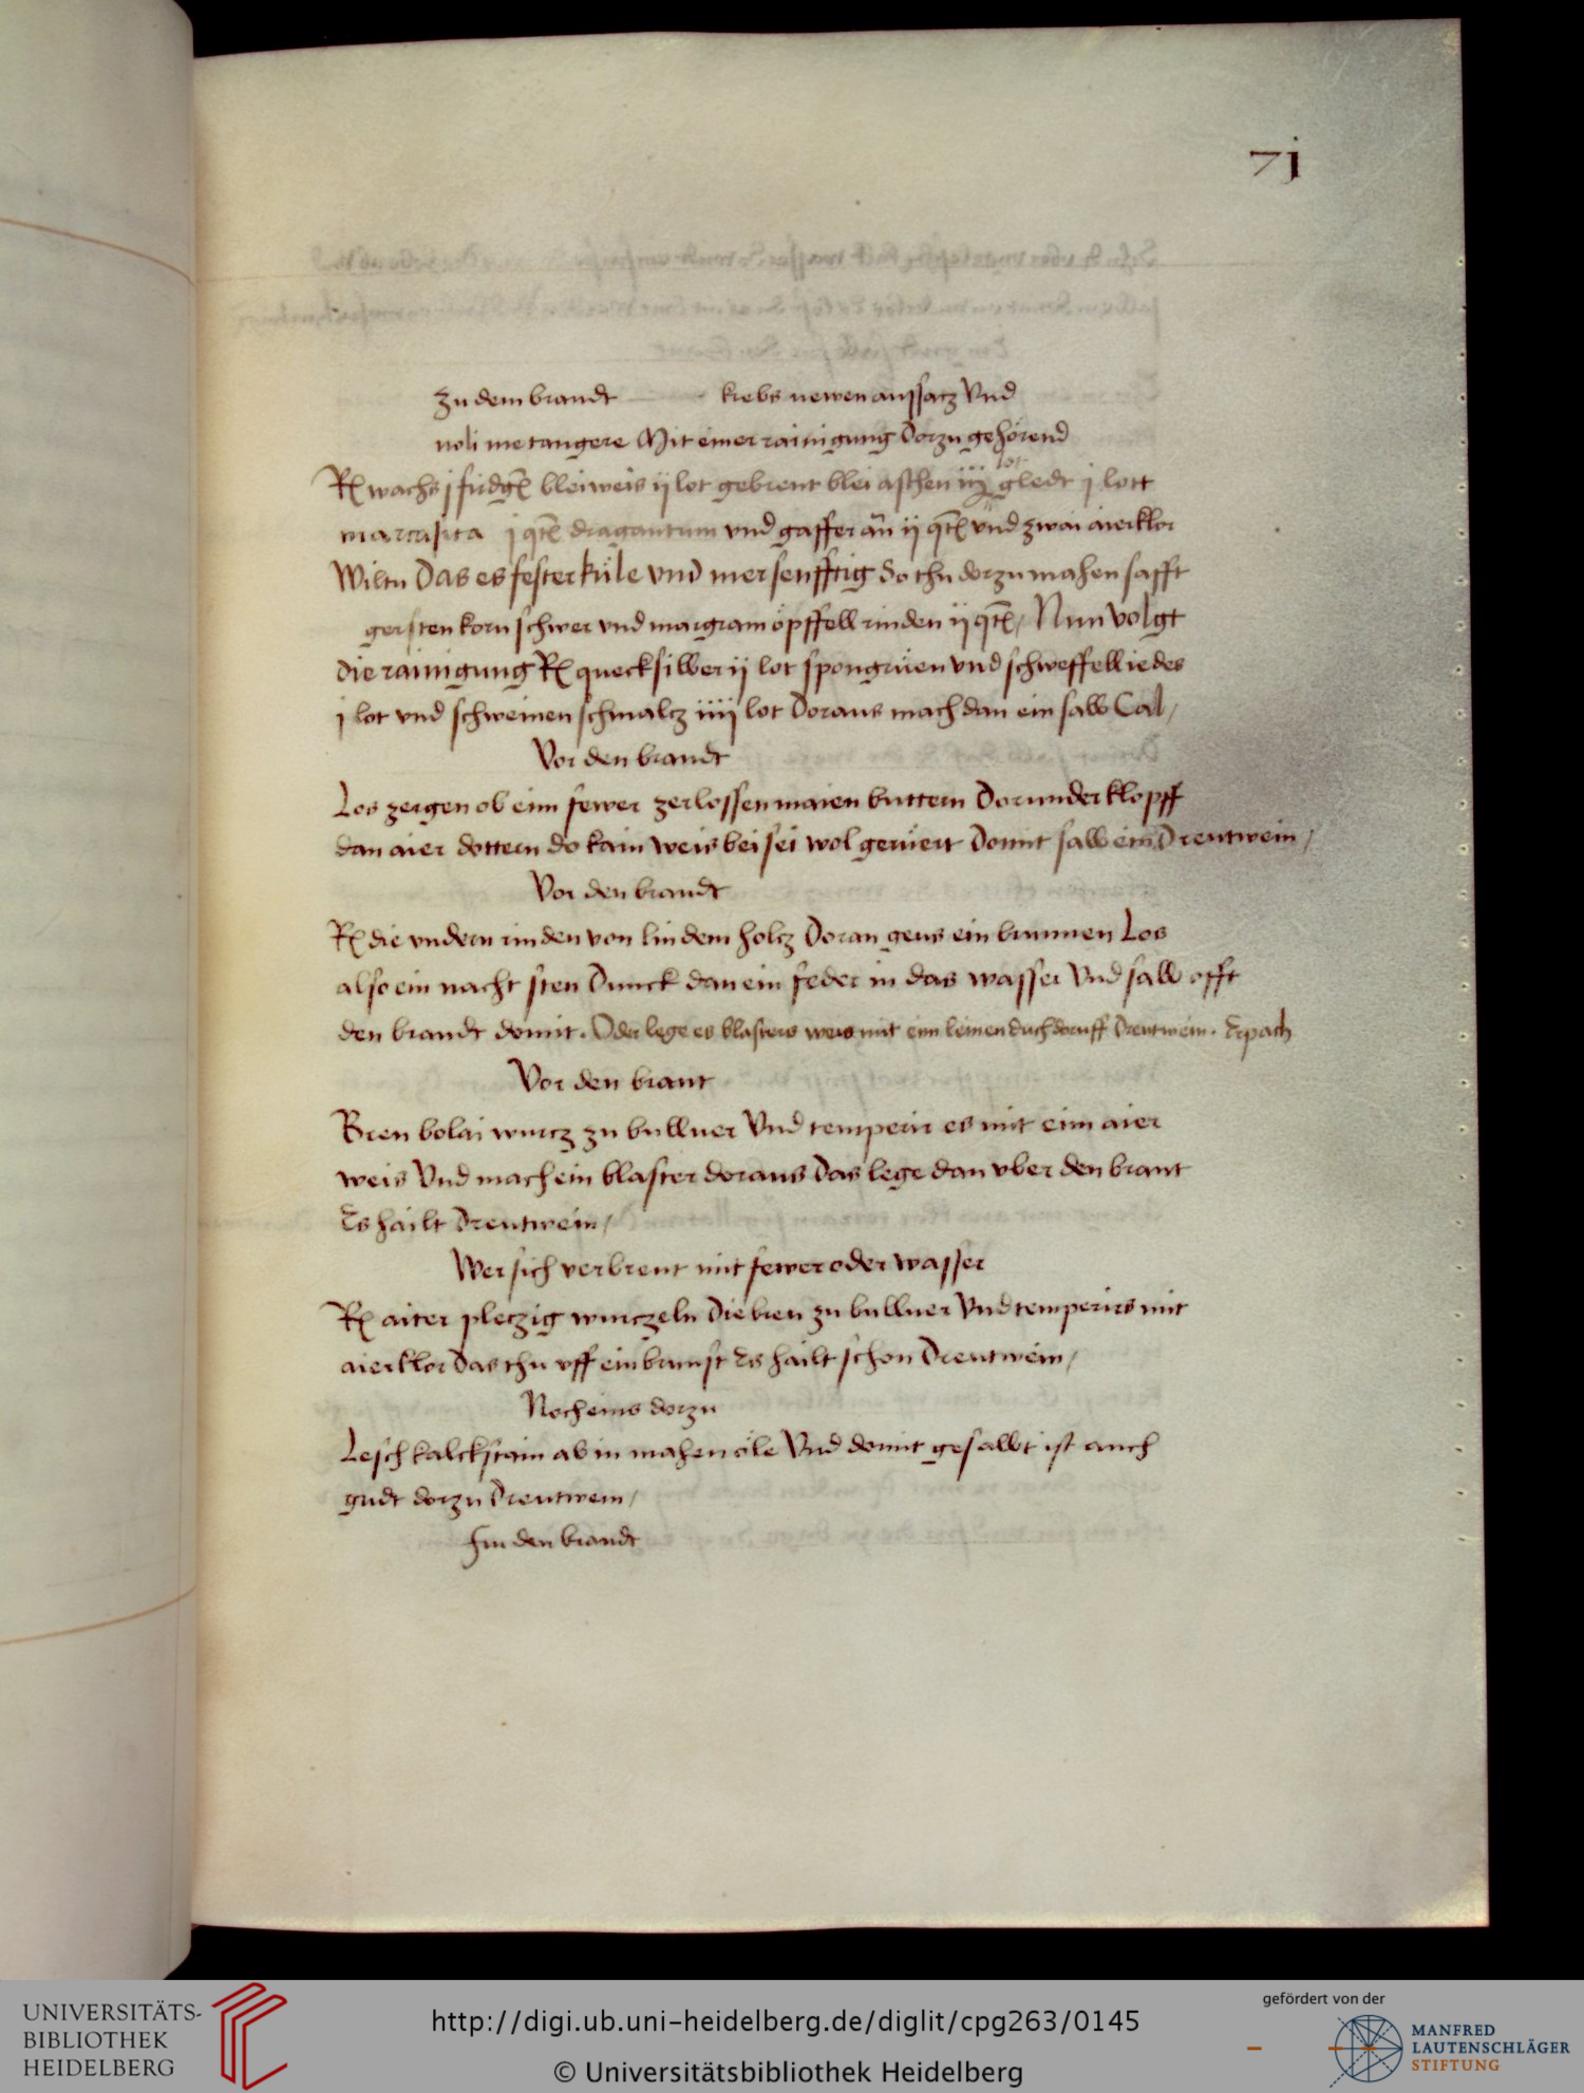 7j
Zu dem brandt krebs newen aussacz Vnd
noli me tangere Mit einer rainigung dorzu gehörend
lot
Rx wachs j bleiweis ij lot gebrent blei aschen iij gledt j lott
marcasita j qtē dragantum vnd gaffer ān ij qtē vnd zwai aierklor
Wiltu Das es fester küle vnd mer senfftig So thu dorzu mahen safft
gersten korn schwer vnd margram öpffell rinden ij qtē / Nun volgt
die rainigung Rx quecksilber ij lot spongrüen vnd schweffell iedes
j lot vnd schweinen schmalcz iiij lot Doraus mach dan ein salb Cal /
Vor den brandt
Los zergen ob eim fewer zerlossen maien buttern Dorunder klopff
dan aier dottern do kain weis bei sei wol gerüert Domit salb ein Drentwein /
Vor den brandt
Rx die vndern rinden von lindem holcz Doran geus ein brunnen Los
also ein nacht sten Dunck dan ein feder in das wasser Vnd salb offt
den brandt domit. Oder lege es blasters weis mit eim leinen duch doruff Drentwein. Erpach
Vor den brant
Bren bolai wurcz zu bullner Vnd temperir es mit eim aier
weis Vnd mach ein blaster doraus Das lege dan vber den brant
Es hailt Drentwein /
Wer sich verbrent mit fewer oder wasser
Rx aiter pleczig wurczeln Die bren zu bullner Vnd temperirs mit
aierklor Das thu vff ein brunst Es hailt schon Drentwein /
Noch eins dorzu
Lesch kalckstain ab in mahen öle Vnd domit gesalbt ist auch
gudt dorzu Drentwein /
Fur den brandt
UNIVERSITÄTS-
BIBLIOTHEK
HEIDELBERG
http://digi.ub.uni-heidelberg.de/diglit/cpg263/0145
© Universitätsbibliothek Heidelberg
gefördert von der
MANFRED
LAUTENSCHLÄGER
STIFTUNG